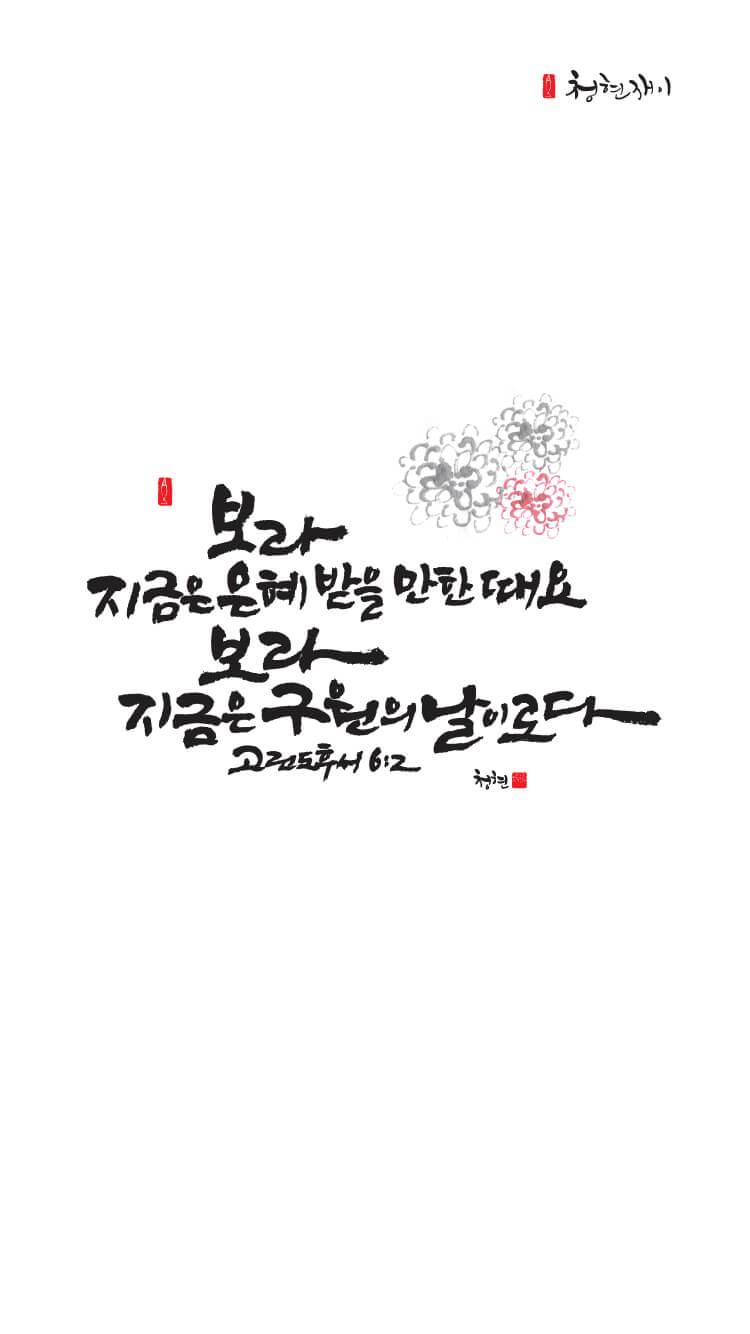 청현재이
보라
지금은 은혜 받을 만한 때요
보라
지금은 구원의 날이로다
고린도후서 6:2
청현